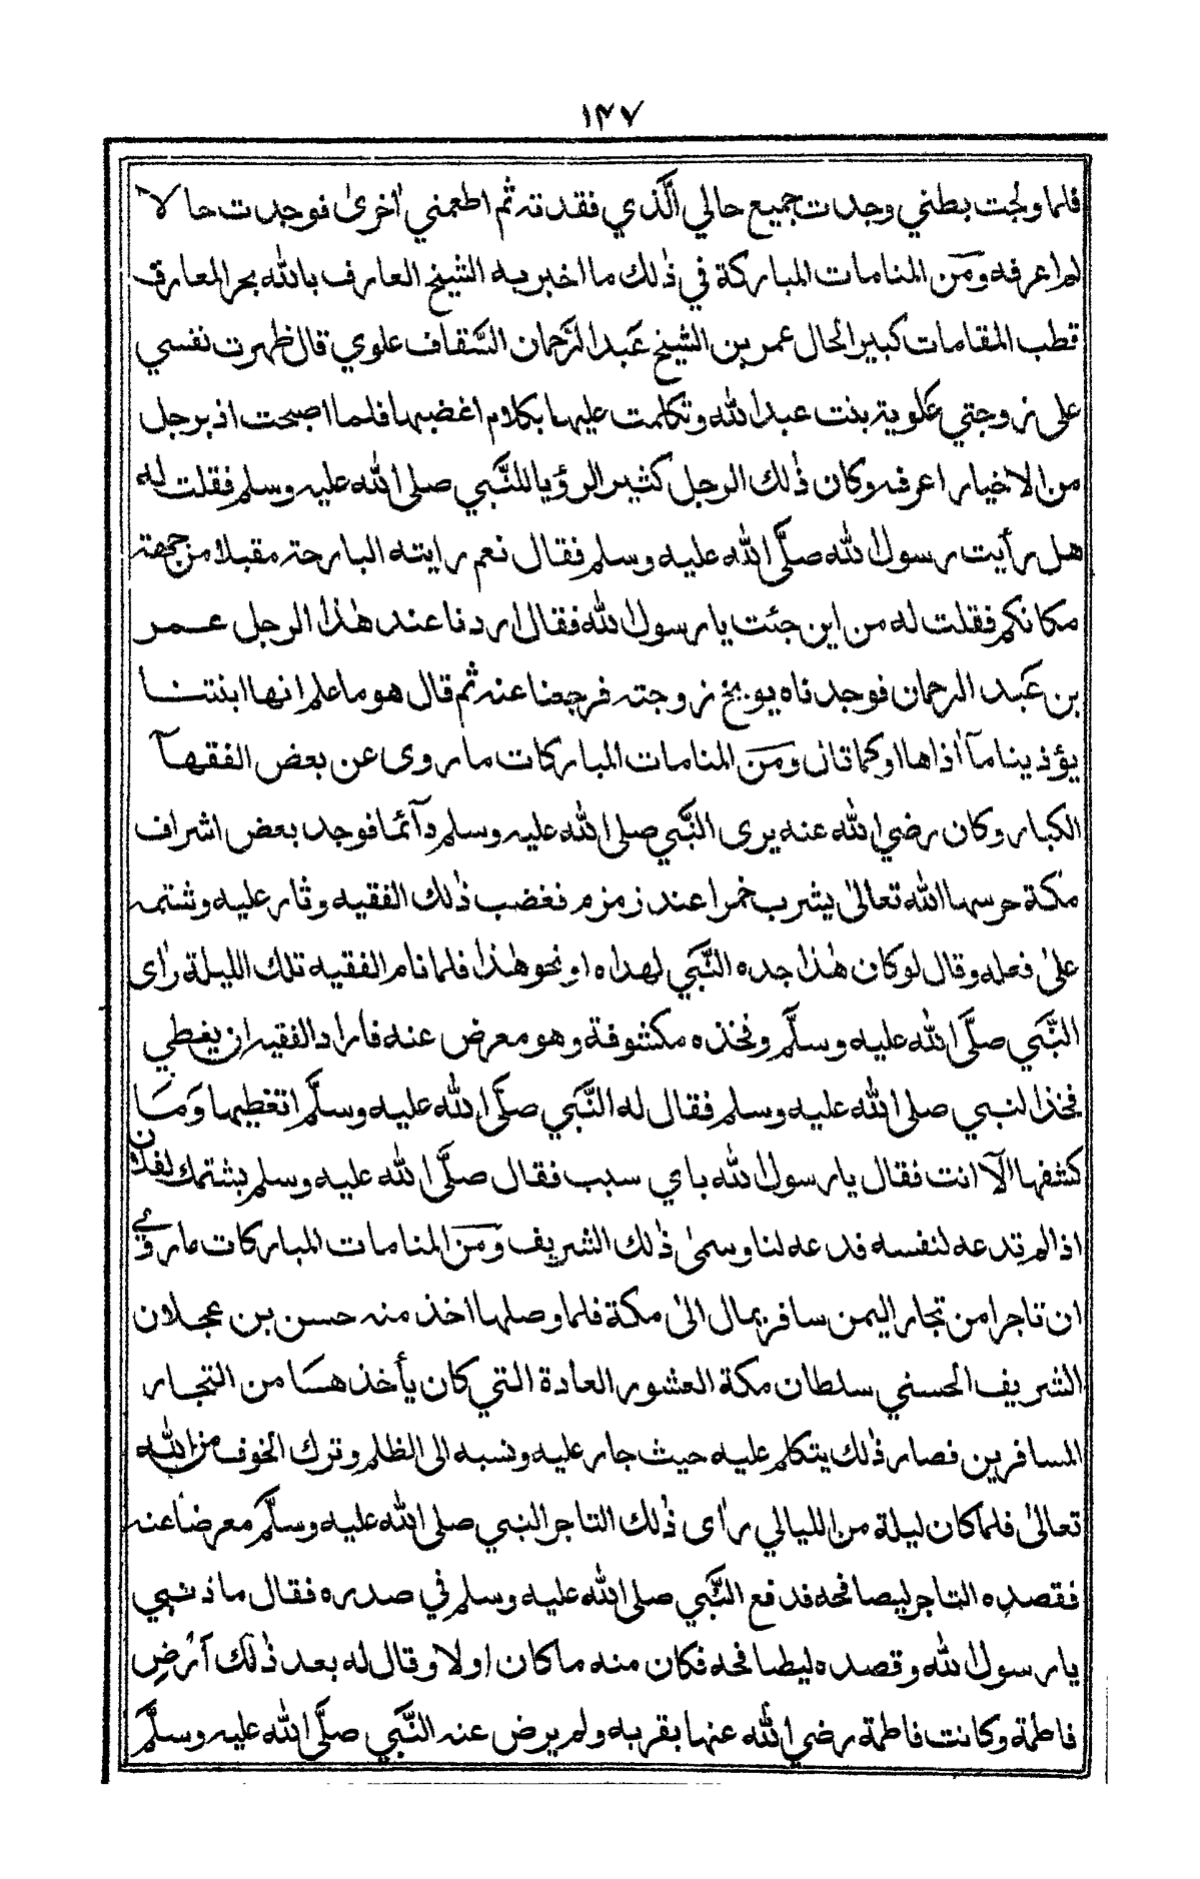 ١٤٧
فلما ولجت بطني وجدت جميع حالي الَّذي فقدته ثم اطعمني أخرىٰ فوجدت حالا
لم اعرفه ومن المنامات المباركة في ذٰلك ما اخبر به الشيخ العارف بالله بحر المعارف
قطب المقامات كبير الحال عمر بن الشيخ عبد الرَّحمان السَّقاف علوي قال ظهرت نفسي
على زوجتي علوية بنت عبد الله وتكلمت عليها بكلام اغضبها فلما اصبحت اذ برجل
من الاخيار اعرفه وكان ذٰلك الرجل كثير الرؤيا للنَّبي صلى الله عليه وسلم فقلت له
هل رأيت رسول الله صلَّى الله عليه وسلم فقال نعم رايته البارحة مقبلا من جهة
مكانكم فقلت له من اين جئت يا رسول الله فقال اردفنا عند هٰذا الرجل عمر
بن عبد الرحمان فوجدناه يوبخ زوجته فرجعنا عنه ثم قال هو ما علم انها ابنتنا
يؤذينا مآ أذاها او كما قال ومن المنامات المباركات ما روى عن بعض الفقهآ
الكبار وكان رضي الله عنه يرى النَّبي صلى الله عليه وسلم دآئما فوجد بعض اشراف
مكة حرسها الله تعالىٰ يشرب خمرا عند زمزم فغضب ذٰلك الفقيه وثار عليه وشتمه
علىٰ فعله وقال لو كان هٰذا جده النَّبي لهداه او نحو هٰذا فلما نام الفقيه تلك الليلة رأى
النَّبي صلَّى الله عليه وسلَّم وفخذه مكشوفة وهو معرض عنه فاراد الفقيه ان يغطي
فخذ النبي صلى الله عليه وسلم فقال له النَّبي صلَّى الله عليه وسلَّم اتغطيها وَمَا
كشفها الّا انت فقال يا رسول الله باي سبب فقال صلَّى الله عليه وسلم بشتمك لفلان
اذ الم تدعه لنفسه فدعه لنا وسمىٰ ذٰلك الشريف ومن المنامات المباركات ما روي
ان تاجرا من تجار اليمن سافر بمال الىٰ مكة فلما وصلها اخذ منه حسن بن عجلان
الشريف الحسني سلطان مكة العشور العادة التي كان يأخذهسا من التجار
المسافرين فصار ذٰلك يتكلم عليه حيث جار عليه ونسبه الى الظلم وترك الخوف من الله
تعالىٰ فلما كان ليلة من الليالي رأى ذٰلك التاجر النبي صلى الله عليه وسلَّم معرضا عنه
فقصده التاجر ليصافحه فدفع النَّبي صلى الله عليه وسلم في صدره فقال ما ذنبي
يا رسول الله وقصده ليطافحه فكان منه ما كان اولا وقال له بعد ذٰلك آرضِ
فاطمة وكانت فاطمة رضي الله عنها بقربه ولم يرض عنه النَّبي صلَّى الله عليه وسلَّم